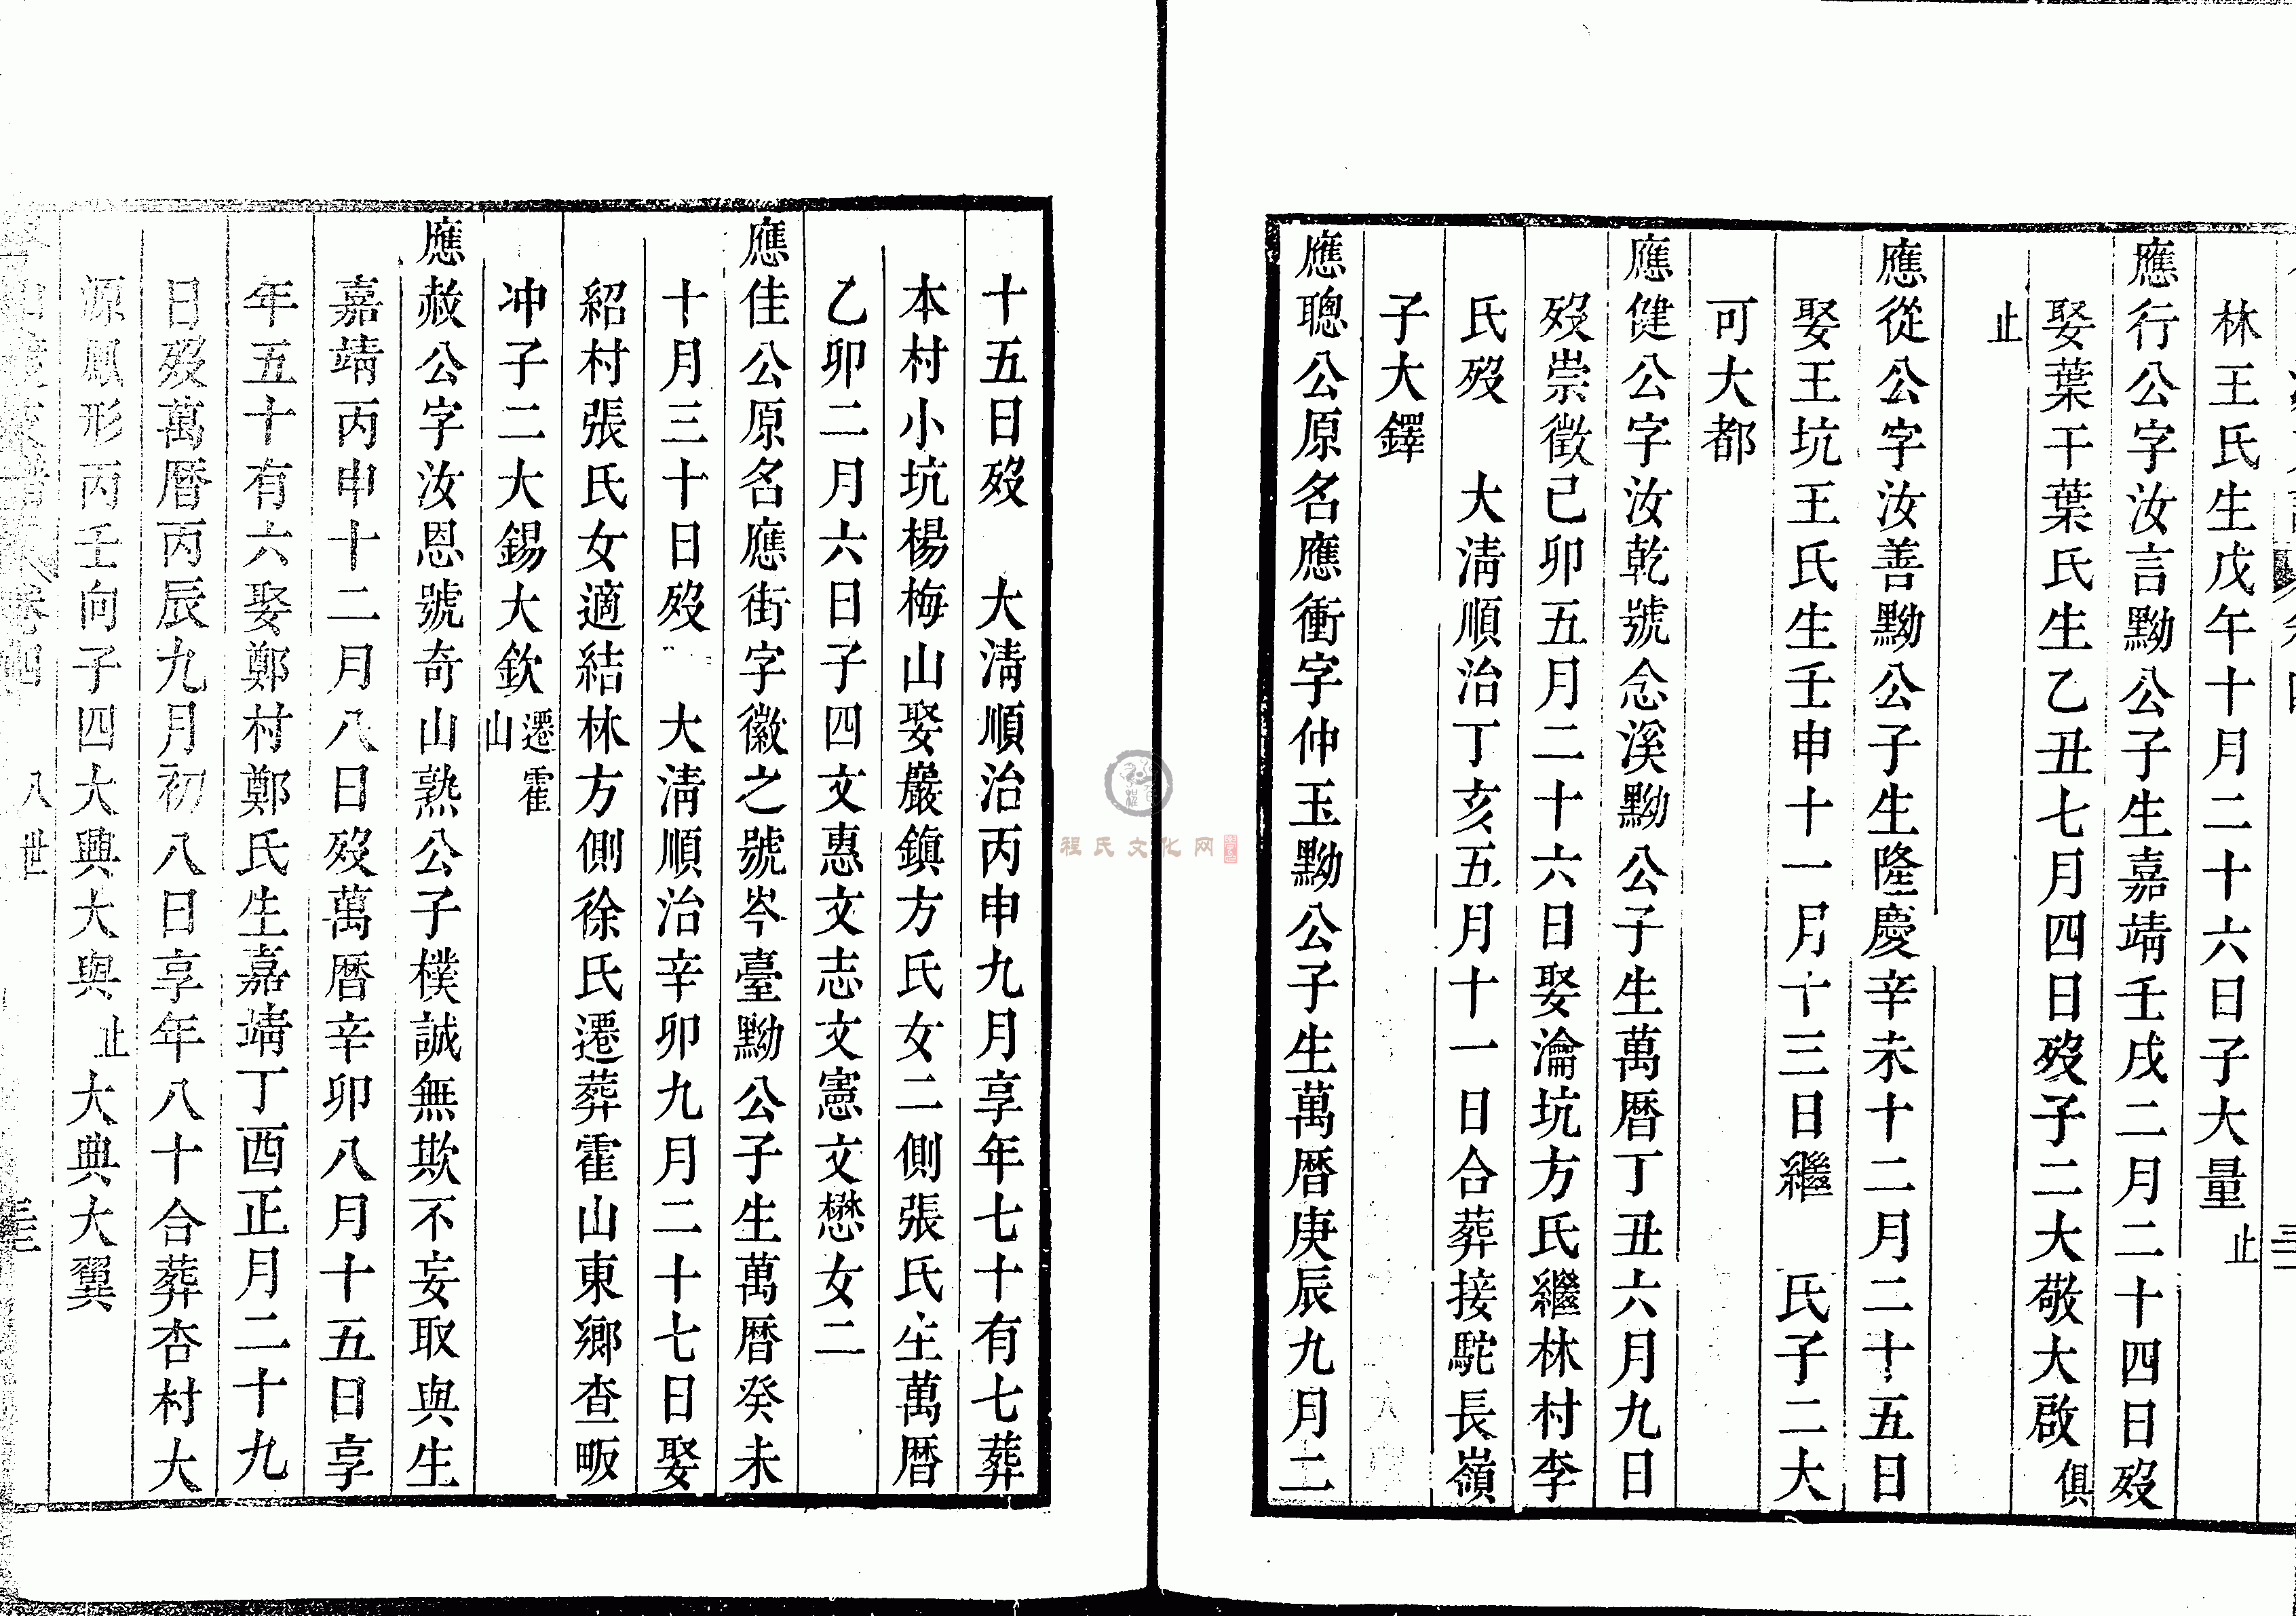 林王氏生戊午十月二十六日子大量止
應行公字汝言黝公子生嘉靖壬戌二月二十四日歿
娶葉干葉氏生乙丑七月四日歿子二大敬大啟俱
止
應從公字汝善黝公子生隆慶辛未十二月二十五日
娶王坑王氏生壬申十一月十三日繼　氏子二大
可大都
應健公字汝乾號念溪黝公子生萬曆丁丑六月九日
歿崇徵己卯五月二十六日娶瀹坑方氏繼林村李
氏歿　大清順治丁亥五月十一日合葬接駝長嶺
子大鐸
應聰公原名應衝字仲玉黝公子生萬曆庚辰九月二
十五日歿　大清順治丙申九月享年七十有七葬
本村小坑楊梅山娶嚴鎮方氏女二側張氏生萬曆
乙卯二月六日子四文惠文志文憲文懋女二
應佳公原名應街字徽之號岑臺黝公子生萬曆癸未
十月三十日歿　大清順治辛卯九月二十七日娶
紹村張氏女適結林方側徐氏遷葬霍山東鄉查畈
冲子二大錫大欽遷霍山
應赦公字汝恩號奇山熟公子樸誠無欺不妄取與生
嘉靖丙申十二月八日歿萬曆辛卯八月十五日享
年五十有六娶鄭村鄭氏生嘉靖丁酉正月二十九
日歿萬曆丙辰九月初八日享年八十合葬杏村大
源鳳形丙壬向子四大興大與止大典大翼
卷四　八世
程氏文化网